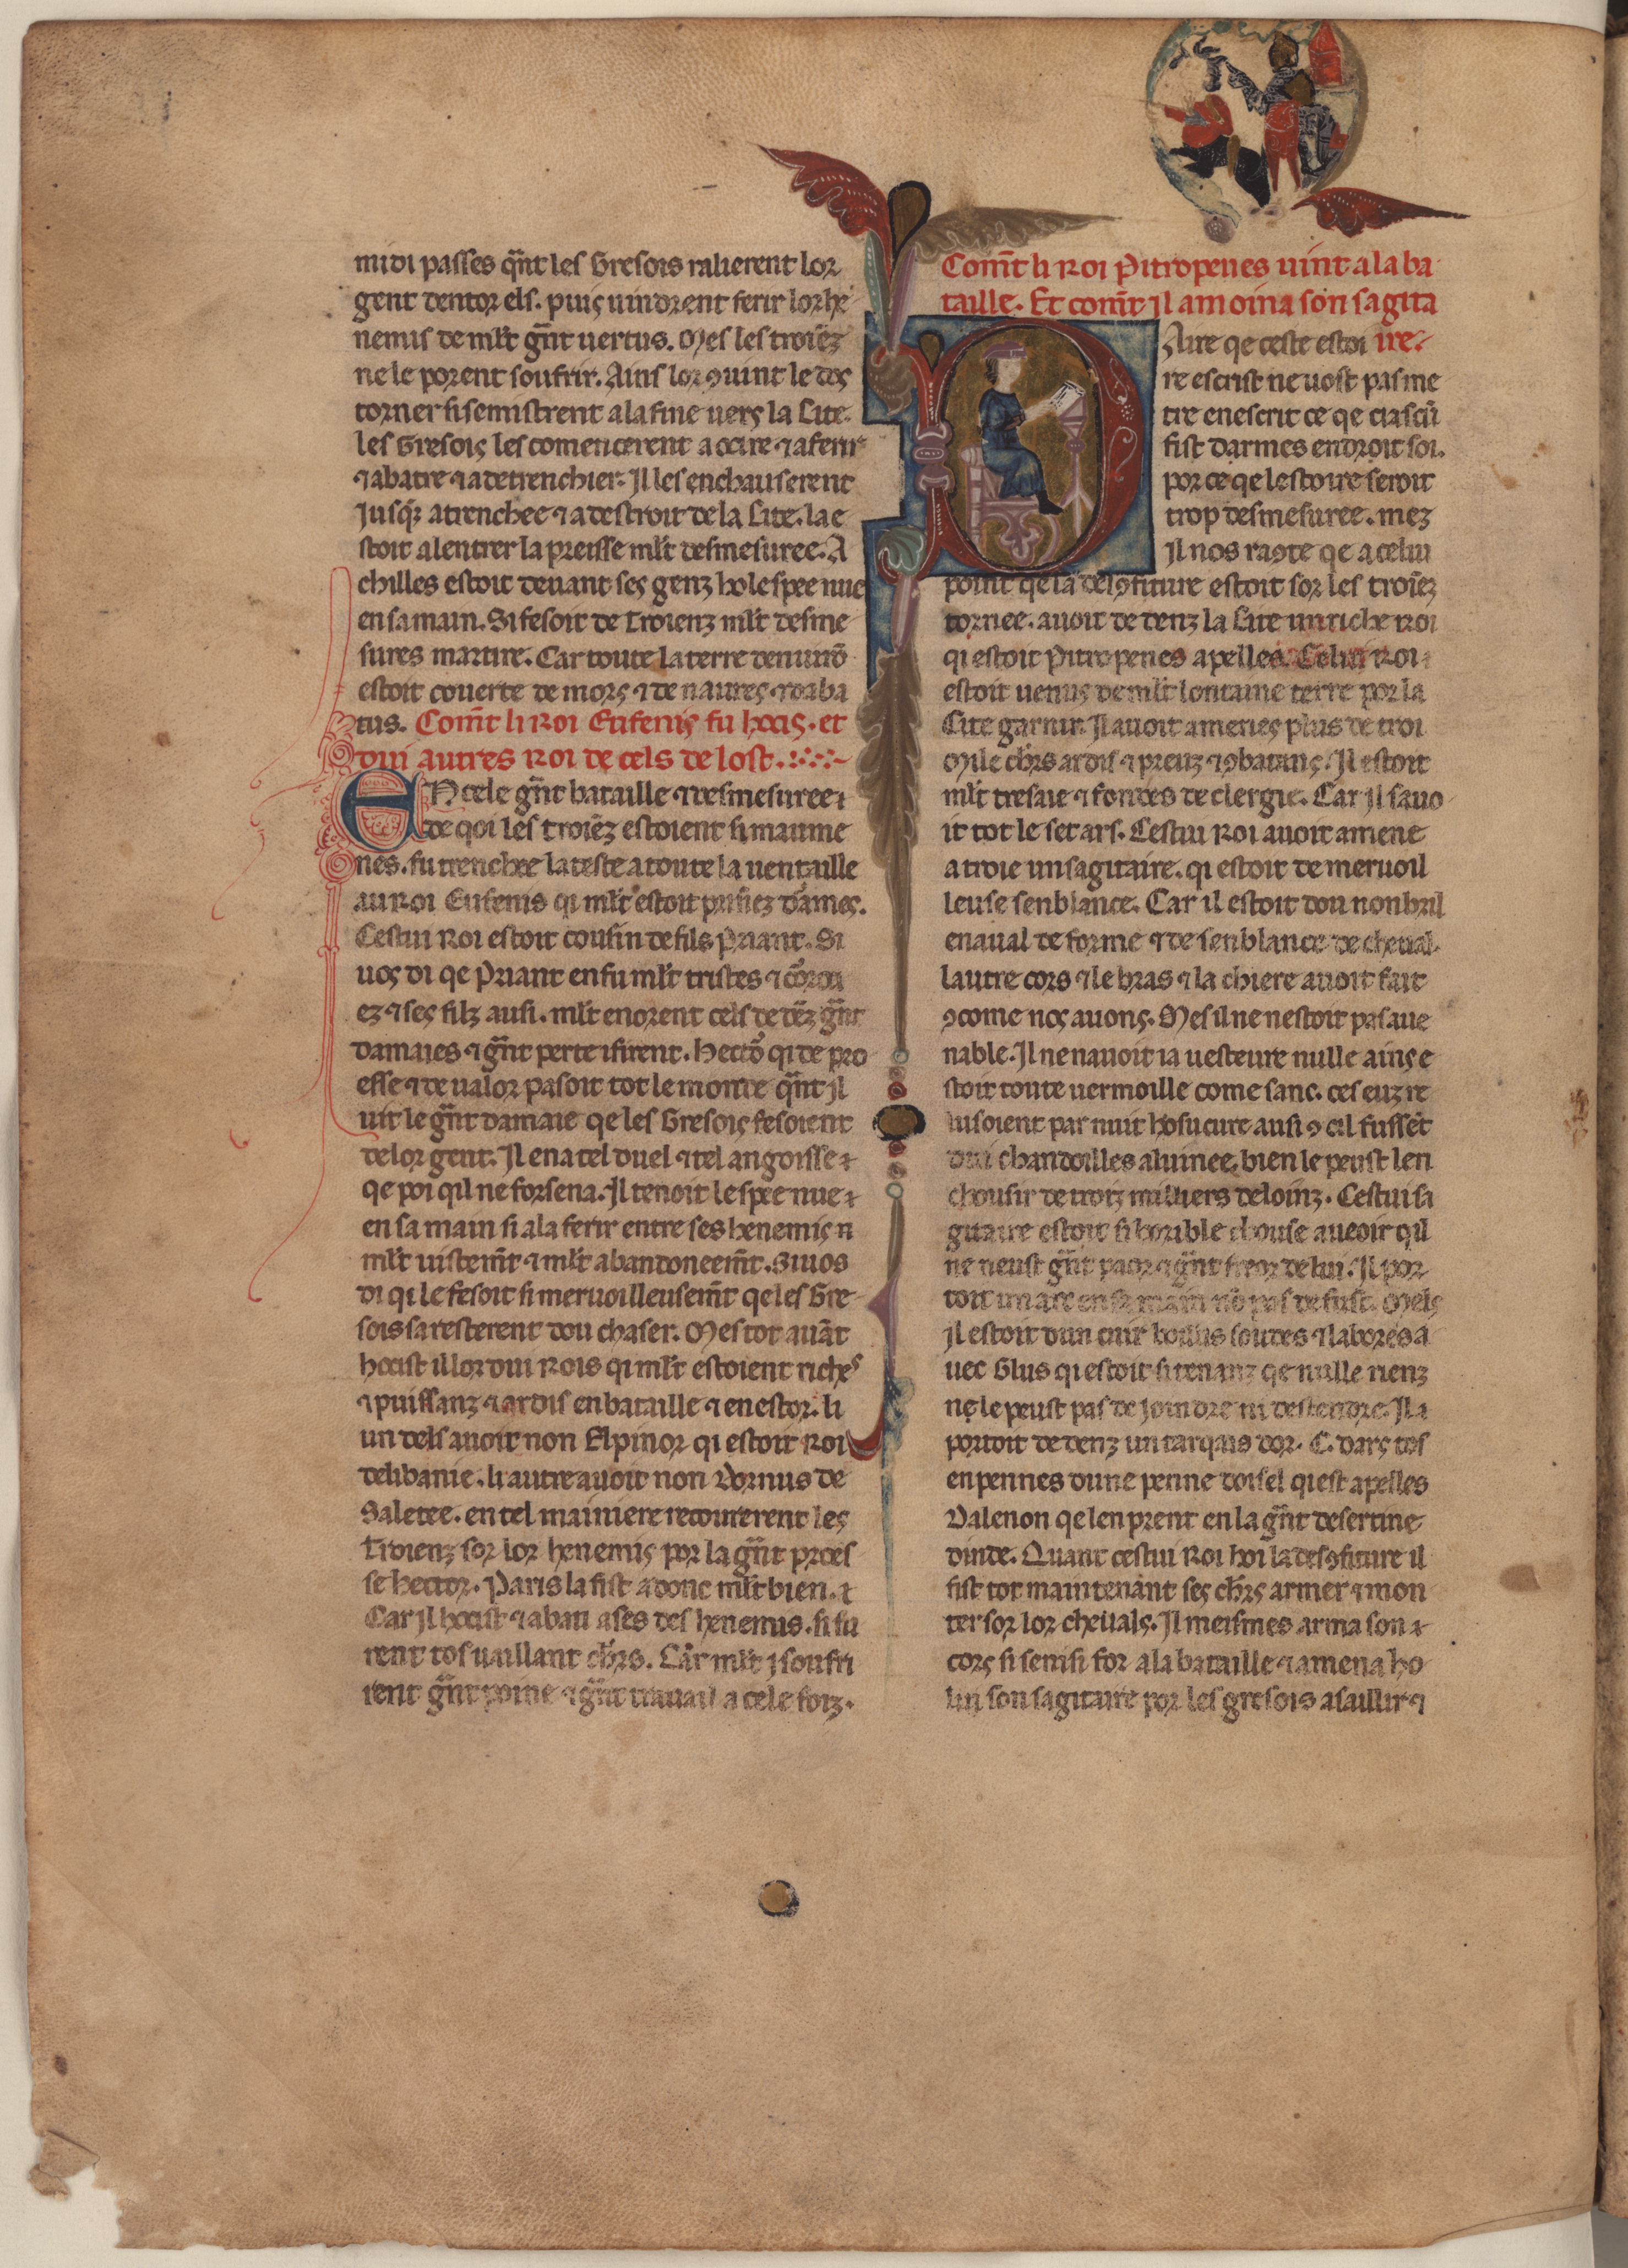 midi passes qñt les Gresois ralierent lor
gent dentor els. puis uindrent ferir lor he
nemis de ml̃t gñt uertus. Mes les troiẽz
ne le porent soufrir. Ains lor ꝯuint le dos
torner si se mistrent a la fuie uers la Cite.
les Gresois les comencerent a ocire ⁊ a ferir
⁊ abatre ⁊ a detrenchier. Il les enchauserent
Jusq̃ a trenchee ⁊ a destroit de la Cite. la e
stoit a lentrer la preisse ml̃t desmesuree. A
chilles estoit deuant ses genz ho lespee nue
en sa main. Si fesoit de Troienz ml̃t desme
sures martire. Car toute la terre denuirõ
estoit couerte de mors ⁊ de naures ⁊ daba
tus. Com̃t li Roi Eufenis fu hocis. et
dui autres Roi de cels de lost.
EN cele gñt bataille ⁊ desmesuree
de qoi les troiẽz estoient si maume
nes. fu trenchee la teste a toute la uentaille
au Roi Eufenis qi ml̃t estoit prisiez darmes.
Cestui Roi estoit cousin de fils Priant. Si
uos di qe Priant en fu ml̃t tristes ⁊ coroci
ez ⁊ ses filz ausi. ml̃t enorent cels de dẽz gñt
damaies ⁊ gñt perte i firent. Hector qi de pro
esse ⁊ de ualor pasoit tot le monde qñt il
uit le gñt damaie qe les Gresois fesoient
de lor gent. Il en a tel duel ⁊ tel angoisse
qe poi qil ne forsena. Il tenoit lespee nue
en sa main si ala ferir entre ses henemis
ml̃t uistem̃t ⁊ ml̃t abandoneem̃t. Si uos
di qi le fesoit si meruoilleusem̃t qe les Gre
sois sa resterent dou chaser. Mes tot auãt
hocist il lor dui Rois qi ml̃t estoient riches
⁊ puissanz ⁊ ardis en bataille ⁊ en estor. li
un dels auoit non Elpinor qi estoit Roi
delibanie. li autre auoit non Dornus de
Saletee. en tel mainiere recourerent les
Troienz sor lor henemis por la gñt proes
se hector. Paris la fist adonc ml̃t bien.
Car il hocist ⁊ abati ases des henemis. si fu
rent tos uaillant chr̃s. Car ml̃t i soufri
rent gñt poine ⁊ gñt trauail a cele foiz.
Com̃t li Roi Pitropenes uint a la ba
taille. Et com̃t il amoina son sagita
ire.
DAire qe ceste estoi
re escrist ne uost pas me
tre en escrit ce qe ciascũ
fist darmes endroit soi.
por ce qe lestoire seroit
trop desmesuree. mez
Il nos raꝯte qe a celui
point qe la desꝯfiture estoit sor les troiẽz
tornee. auoit de denz la Cite un riche Roi
qi estoit Pitropenes apelles. Celui Roi
estoit uenus de ml̃t lontaine terre por la
Cite garnir. Il auoit amenes plus de troi
Mile chr̃s ardis ⁊ preuz ⁊ ꝯbatans. Il estoit
ml̃t tresaie ⁊ fondes de clergie. Car il sauo
it tot le set ars. Cestui Roi auoit amene
a troie un sagitaire. qi estoit de meruoil
leuse senblance. Car il estoit dou nonbril
enaual de forme ⁊ de senblance de cheual.
lautre cors ⁊ le bras ⁊ la chiere auoit fait
ꝯcome nos auons. Mes il ne nestoit pas aue
nable. Il ne nauoit ia uesteure nulle ains e
stoit toute uermoille come sanc. ces euz re
lusoient par nuit hoscure ausi ꝯ cil fussẽt
dui chandoilles alumee, bien le peust len
chousir de troiz milliers de loinz. Cestui sa
gitaire estoit si horible chouse aueoir qil
ne neust gñt paor ⁊ gñt freor de lui. Il por
toit un arc en sa main nõ pas de fust. Mels
il estoit dun cuir boillis soudes ⁊ labores a
uec Glus qi estoit si tenanz qe nulle rienz
ne le peust pas de joindre ni destendre. Il a
portoit de denz un tarqais dor. C. dars tos
enpennes dune penne doisel qi est apelles
Dalenon qe len prent en la gñt desertine
dinde. Quant cestui Roi hoi la desꝯfiture il
fist tot maintenant ses chr̃s armer ⁊ mon
ter sor lor cheuals. Il meismes arma son
cors si se misi for a la bataille ⁊ amena ho
lui son sagitaire por les gresois asaillir ⁊